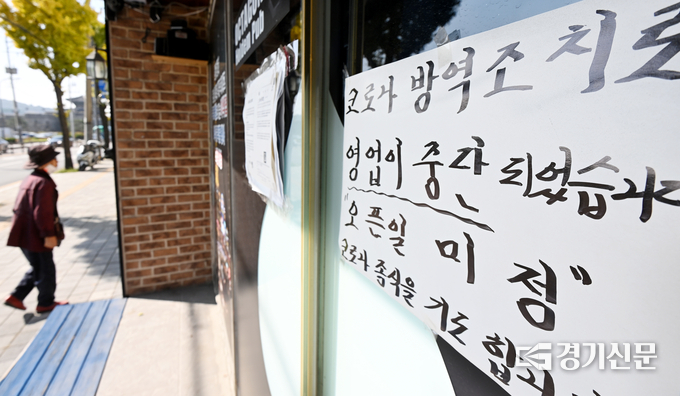 코로나 방역조치로
영업이 중단 되었습니다
"오픈일 미정"
코로나 종식을 기도 합
경기신문